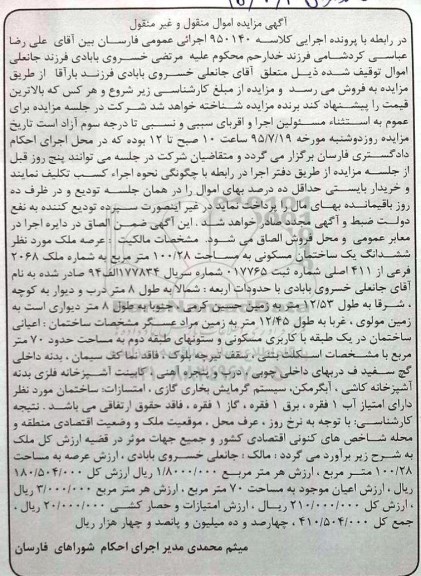 آگهی مزایده اموال منقول و غیر منقول
در رابطه با پرونده اجرایی کلاسه ۹۵۰۱۴۰ اجرائی عمومی فارسان بین آقای علی رضا
عباسی کردشامی فرزند خدارحم محکوم علیه مرتضی خسروی بابادی فرزند جانعلی
اموال توقیف شده ذیل متعلق آقای جانعلی خسروی بابادی فرزند بارآقا از طریق
مزایده به فروش می رسد و مزایده از مبلغ کارشناسی زیر شروع و هر کس که بالاترین
قیمت را پیشنهاد کند برنده مزایده شناخته خواهد شد شرکت در جلسه مزایده برای
عموم به استثناء مسئولین اجرا و اقربای سببی و نسبی تا درجه سوم آزاد است تاریخ
مزایده روزدوشنبه مورخه ۹۵/۷/۱۹ ساعت ۱۰ صبح تا ۱۲ بوده که در محل اجرای احکام
دادگستری فارسان برگزار می گردد و متقاضیان شرکت در جلسه می توانند پنج روز قبل
از جلسه مزایده از طریق دفتر اجرا در رابطه با چگونگی نحوه اجراء کسب تکلیف نمایند
و خریدار بایستی حداقل ده درصد بهای اموال را در همان جلسه تودیع و در ظرف ده
روز باقیمانده بهای مال را پرداخت نماید در غیر اینصورت سپرده تودیع کننده به نفع
دولت ضبط و آگهی مجدد صادر خواهد شد . این آگهی ضمن الصاق در دایره اجرا در
معابر عمومی و محل فروش الصاق می شود. مشخصات مالکیت : عرصه ملک مورد نظر
ششدانگ یک ساختمان مسکونی به مساحت ۱۰۰/۲۸ متر مربع به شماره ملک ۲۰۶۸
فرعی از ۴۱۱ اصلی شماره ثبت ۰۱۷۷۶۵ شماره سریال ۱۷۷۸۳۴الف۹۴ صادر شده به نام
آقای جانعلی خسروی بابادی با حدودات اربعه : شمالا به طول ۸ متر درب و دیوار به کوچه
، شرقا به طول ۱۲/۵۳ متر به زمین حسین کرمی ، جنوبا به طول ۸ متر دیواری است به
زمین مولوی ، غربا به طول ۱۲/۴۵ متر به زمین مراد عسگر مشخصات ساختمان : اعیانی
ساختمان در یک طبقه با کاربری مسکونی و ستونهای طبقه دوم به مساحت حدود ۷۰ متر
مربع با مشخصات اسکلت بتنی ، سقف تیرچه بلوک ، فاقد نما کف سیمان ، بدنه داخلی
گچ سفید ف دربهای داخلی چوبی ، درب و پنجره آهنی ، کابینت آشپزخانه فلزی بدنه
آشپزخانه کاشی ، آبگرمکن، سیستم گرمایش بخاری گازی ، امتیازات: ساختمان مورد نظر
دارای امتیاز آب ۱ فقره ، برق ۱ فقره ، گاز ۱ فقره ، فاقد حقوق ارتفاقی می باشد . نتیجه
کارشناسی: با توجه به نرخ روز ، عرف محل ، موقعیت ملک و وضعیت اقتصادی منطقه و
محله شاخص های کنونی اقتصادی کشور و جمیع جهات موثر در قضیه ارزش کل ملک
به شرح زیر برآورد می گردد : مالک : جانعلی خسروی بابادی ، ارزش عرصه به مساحت
۱۰۰/۲۸ متر مربع ، ارزش هر متر مربع ۱/۸۰۰/۰۰۰ ریال ارزش کل ۱۸۰/۵۰۴/۰۰۰
ریال ، ارزش اعیان موجود به مساحت ۷۰ متر مربع ، ارزش هر متر مربع ۳/۰۰۰/۰۰۰ ریال
، ارزش کل ۲۱۰/۰۰۰/۰۰۰ ریال ، ارزش امتیازات و حصار کشی ۲۰/۰۰۰/۰۰۰ ریال ،
جمع کل ۴۱۰/۵۰۴/۰۰۰ ، چهارصد و ده میلیون و پانصد و چهار هزار ریال
میثم محمدی مدیر اجرای احکام شوراهای فارسان